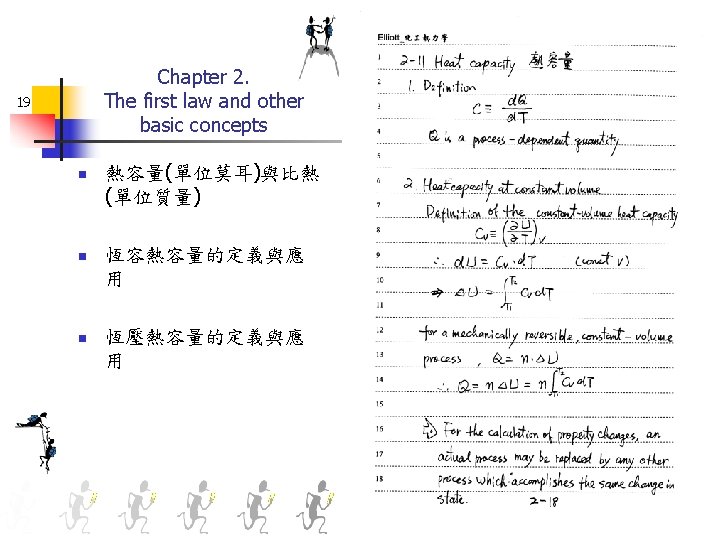 Chapter 2.
The first law and other
basic concepts
19
熱容量(單位莫耳)與比熱
(單位質量)
恆容熱容量的定義與應
用
恆壓熱容量的定義與應
用
Elliott_化工熱力學
1 2-11 Heat capacity 熱容量
2 1. Definition
3 C ≡ dQ/dT
4 Q is a process-dependent quantity
5
6 2. Heat capacity at constant volume
7 Definition of the constant-volume heat capacity
8 Cv ≡ (∂U/∂T)v
9 ∴ dU = Cv·dT (const V)
10 ⇒ ΔU = ∫T1T2 Cv dT
11
12 for a mechanically reversible, constant-volume
13 process, Q = n·ΔU
14 ∴ Q = nΔU = n∫T1T2 Cv dT
15
16 For the calculation of property changes, an
17 actual process may be replaced by any other
18 process which accomplishes the same change in
state. 2-18